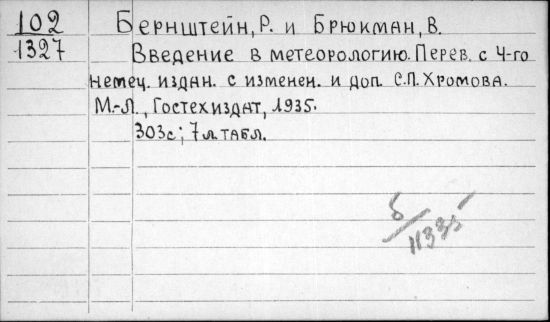 102 Бернштейн, Р. и Брюкман, В.
1327 Введение в метеорологию. Перев. с 4-го
немец. издан. с изменен. и доп. С.П. Хромова.
М.-Л., Гостехиздат, 1935.
303с; 7 л. табл.
Б/11335